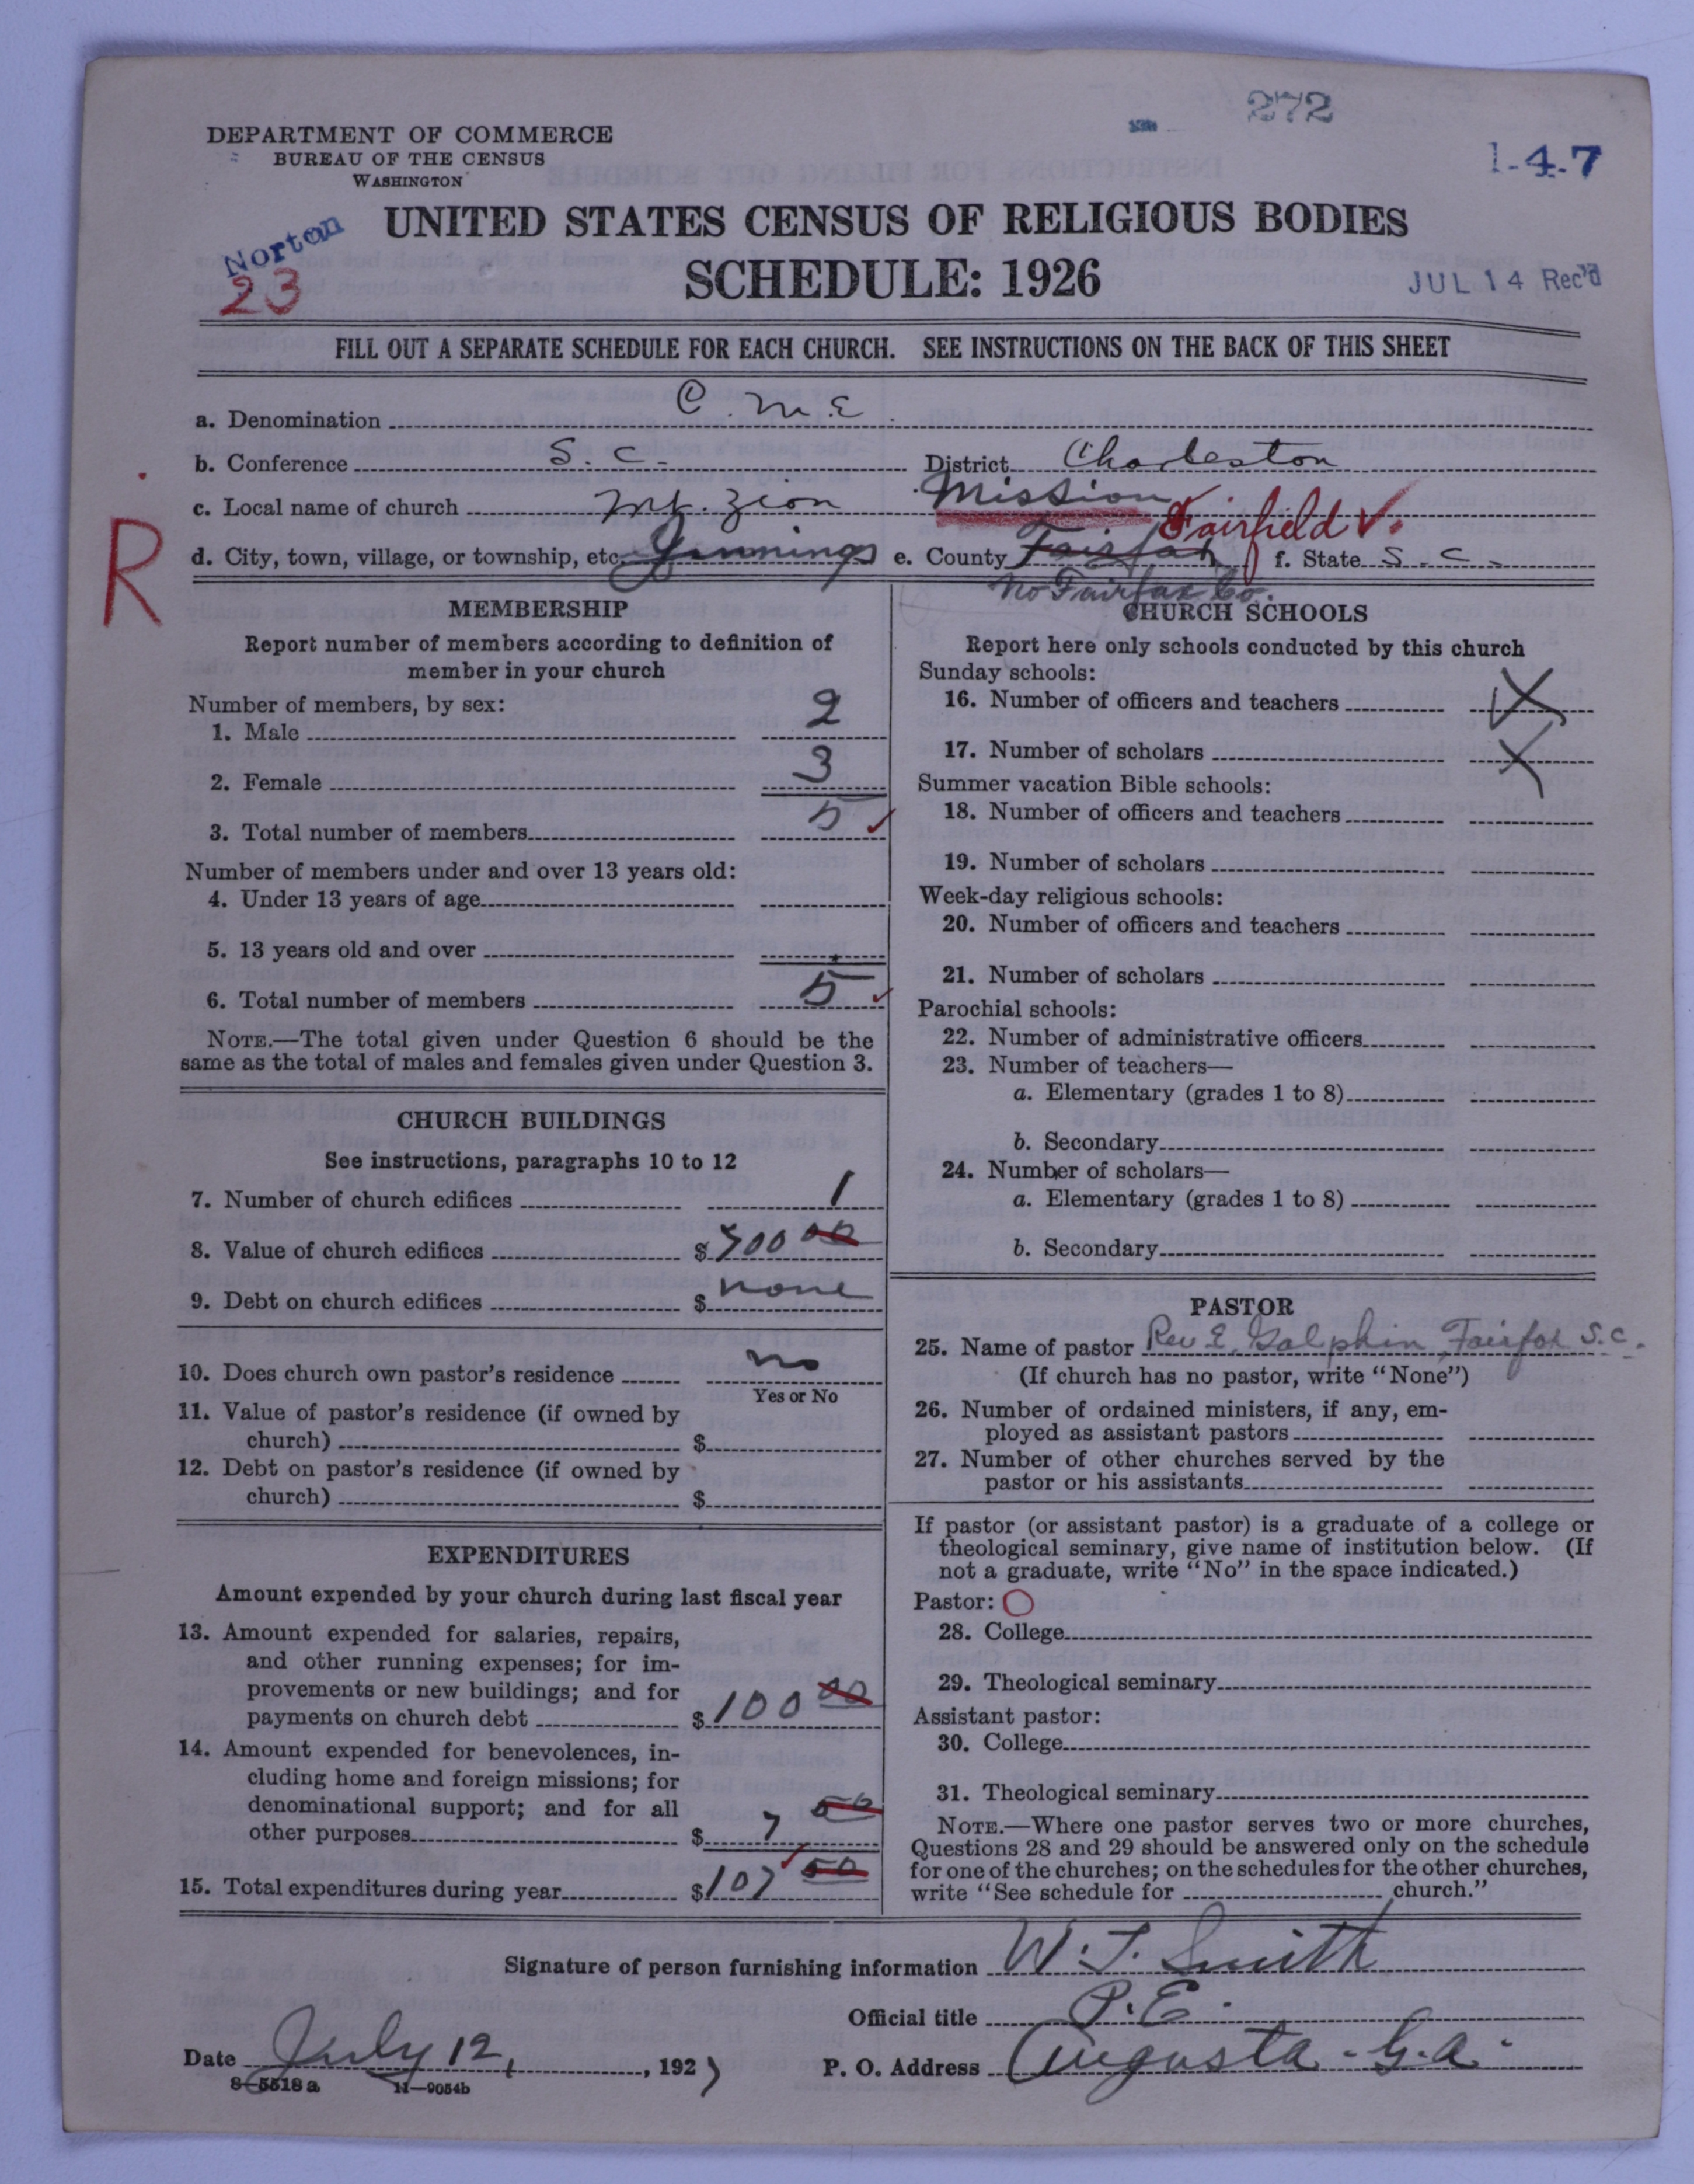 272
DEPARTMENT OF COMMERCE
BUREAU OF THE CENSUS
WASHINGTON
1-4-7
UNITED STATES CENSUS OF RELIGIOUS BODIES
Norton
23
SCHEDULE: 1926
JUL 14 Rec'd
FILL OUT A SEPARATE SCHEDULE FOR EACH CHURCH. SEE INSTRUCTIONS ON THE BACK OF THIS SHEET
a. Denomination C.M.E.
b. Conference S.C. District Charleston
c. Local name of church Mt. Zion Mission
Fairfield ✓.
R
d. City, town, village, or township, etc. Jennings e. County Fairfax f. State S.C.
No Fairfax Co.
MEMBERSHIP
Report number of members according to definition of
member in your church
Number of members, by sex:
1. Male 2
2. Female 3
3. Total number of members 5 ✓
Number of members under and over 13 years old:
4. Under 13 years of age
5. 13 years old and over
6. Total number of members 5 ✓
NOTE.—The total given under Question 6 should be the
same as the total of males and females given under Question 3.
CHURCH BUILDINGS
See instructions, paragraphs 10 to 12
7. Number of church edifices 1
8. Value of church edifices $ 00
9. Debt on church edifices $ none
10. Does church own pastor's residence no
Yes or No
11. Value of pastor's residence (if owned by
church) $
12. Debt on pastor's residence (if owned by
church) $
EXPENDITURES
Amount expended by your church during last fiscal year
13. Amount expended for salaries, repairs,
and other running expenses; for im-
provements or new buildings; and for
payments on church debt $ 100 00
14. Amount expended for benevolences, in-
cluding home and foreign missions; for
denominational support; and for all
other purposes $ 7 50
15. Total expenditures during year $ 107 50
CHURCH SCHOOLS
Report here only schools conducted by this church
Sunday schools:
16. Number of officers and teachers X
17. Number of scholars X
Summer vacation Bible schools:
18. Number of officers and teachers
19. Number of scholars
Week-day religious schools:
20. Number of officers and teachers
21. Number of scholars
Parochial schools:
22. Number of administrative officers
23. Number of teachers—
a. Elementary (grades 1 to 8)
b. Secondary
24. Number of scholars—
a. Elementary (grades 1 to 8)
b. Secondary
PASTOR
25. Name of pastor Rev E. Galphin, Fairfax S.C.
(If church has no pastor, write "None")
26. Number of ordained ministers, if any, em-
ployed as assistant pastors
27. Number of other churches served by the
pastor or his assistants
If pastor (or assistant pastor) is a graduate of a college or
theological seminary, give name of institution below. (If
not a graduate, write "No" in the space indicated.)
Pastor: O
28. College
29. Theological seminary
Assistant pastor:
30. College
31. Theological seminary
NOTE.—Where one pastor serves two or more churches,
Questions 28 and 29 should be answered only on the schedule
for one of the churches; on the schedules for the other churches,
write "See schedule for church."
Signature of person furnishing information W. T. Smith
Official title P.E.
Date July 12, , 1927 P. O. Address Augusta. Ga.
8-5518a 11-9054b